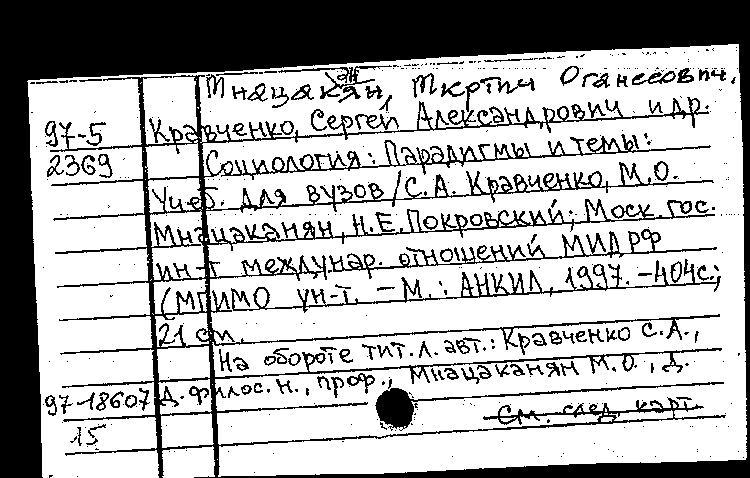 Мнацаканян, Мкртич Оганесович.
97-5 Кравченко, Сергей Александрович и др.
2369 Социология: Парадигмы и темы:
Учеб. для вузов / С.А. Кравченко, М.О.
Мнацаканян, Н.Е. Покровский; Моск. гос.
ин-т междунар. отношений МИД РФ
(МГИМО ун-т. - М.: АНКИЛ, 1997. - 404с.;
21 см.
На обороте тит. л. авт.: Кравченко С.А.,
97-18607 д. филос. н., проф., Мнацаканян М.О., д.
15 См. след. карт.